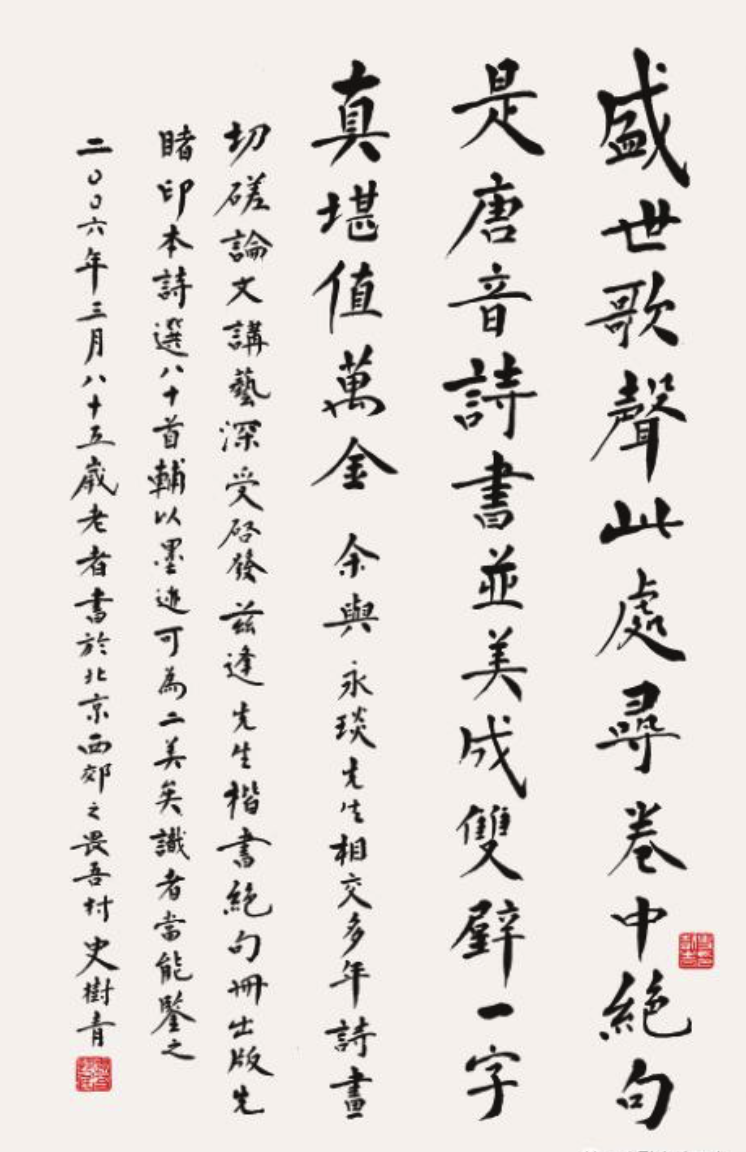 盛世歌聲此處尋卷中絕句
是唐音詩書並美成雙壁一字
真堪值萬金 余與永琰先生相交多年詩畫
切磋論文講藝深受启發茲逢先生楷書絕句冊出版先
睹印本詩選八十首輔以墨迹可為二美矣識者當能鑒之
二〇〇六年三月八十五歲老者書於北京西郊之畏吾村史樹青